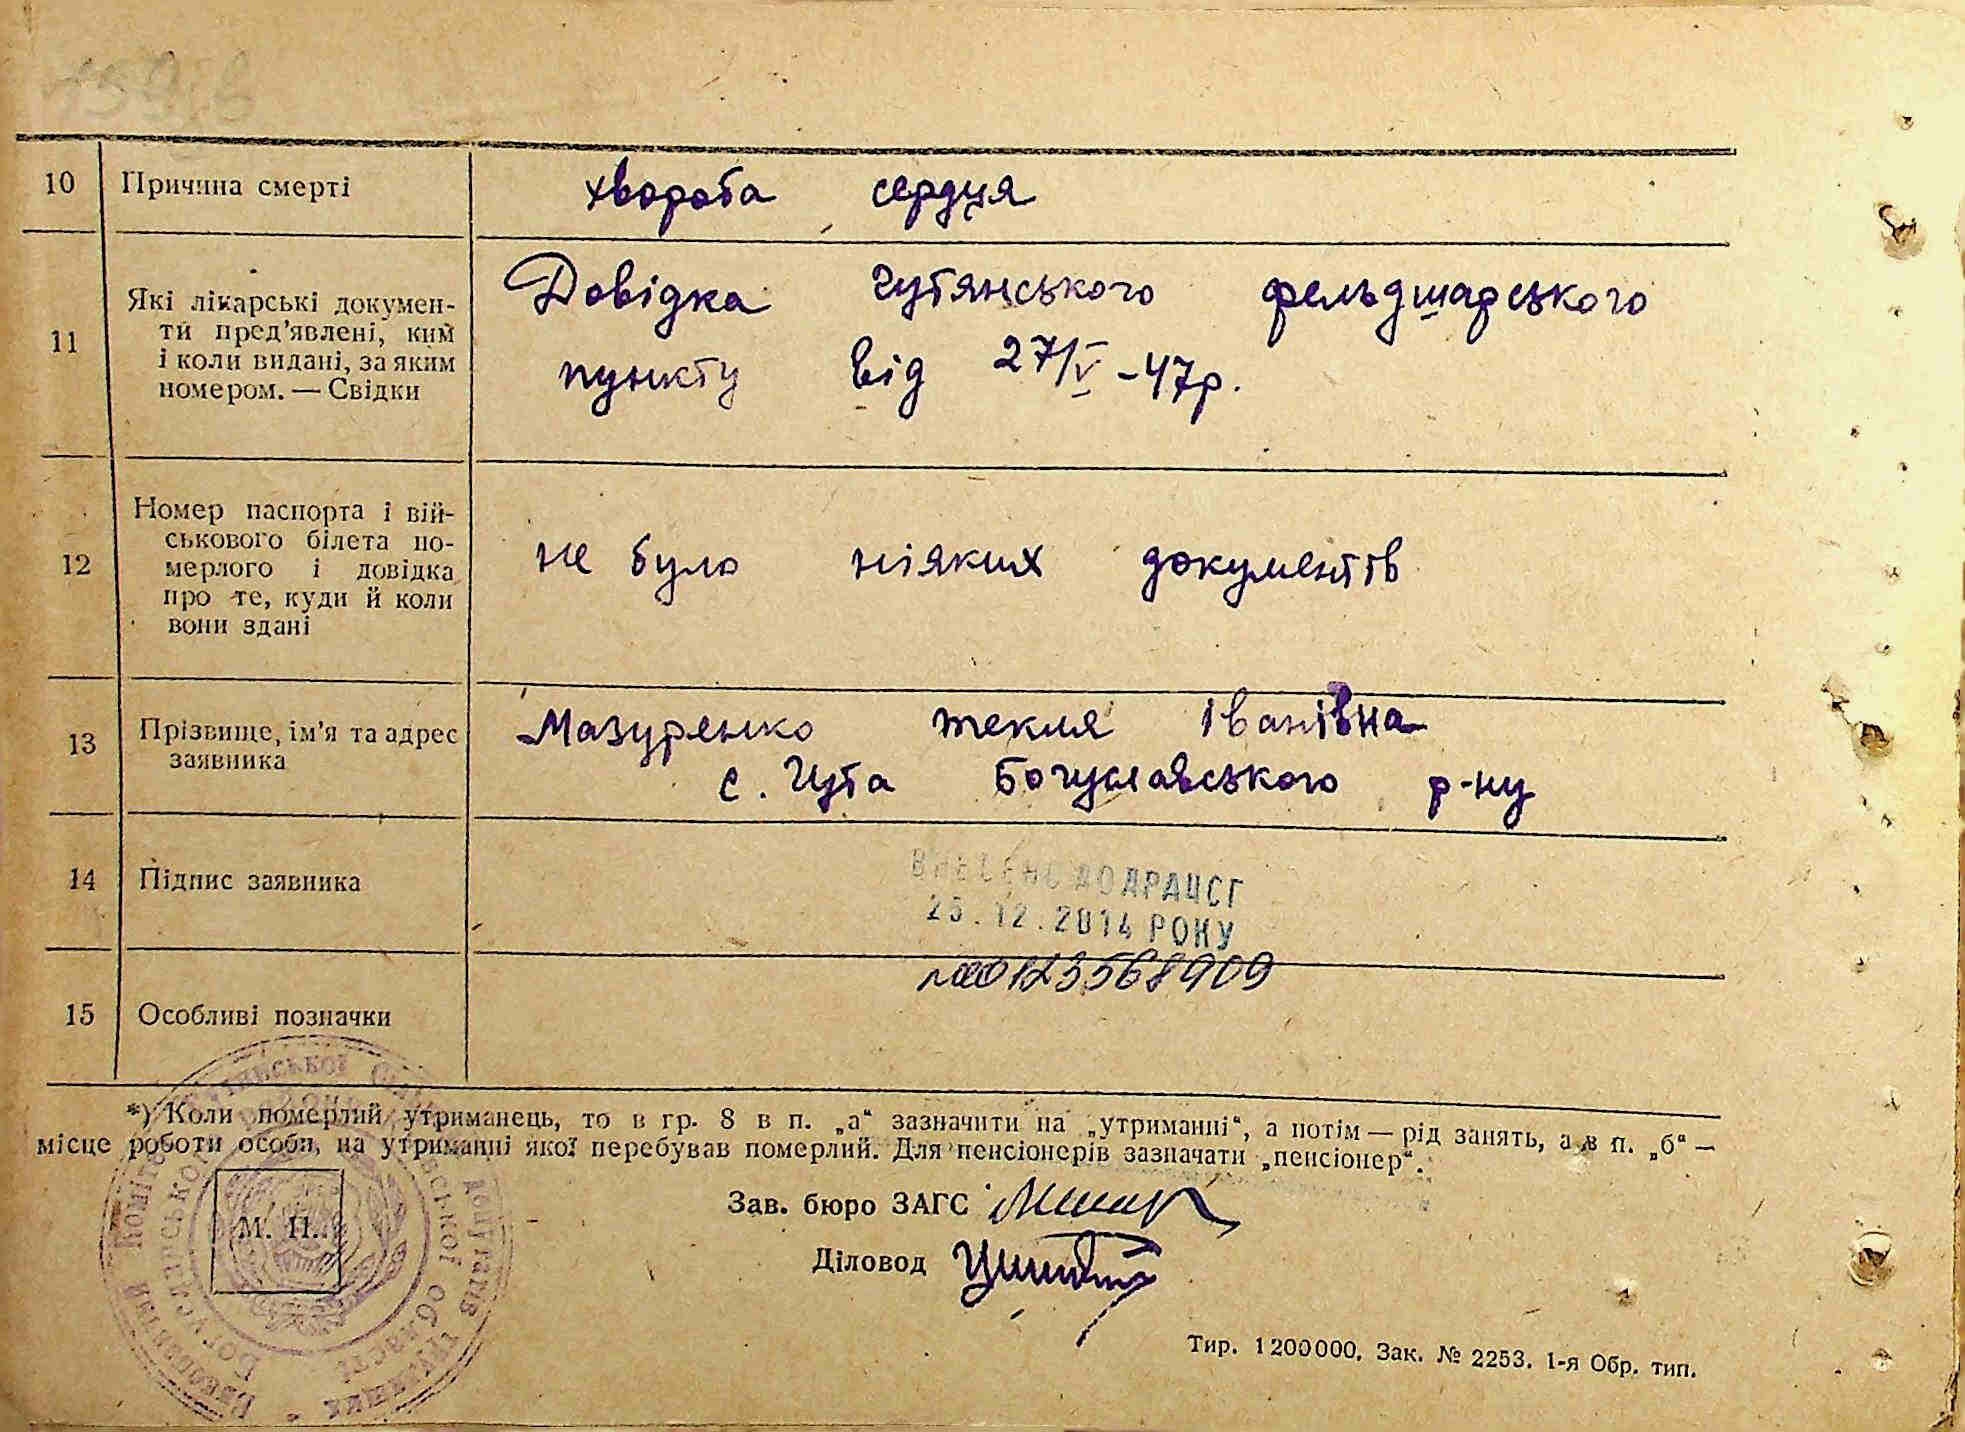 10 Причина смерті хвороба сердця
11 Які лікарські докумен-
ти пред'явлені, ким
і коли видані, за яким
номером. — Свідки
Довідка Чутянського фельдшарського
пункту від 27/V-47р.
12 Номер паспорта і вій-
ськового білета по-
мерлого і довідка
про те, куди й коли
вони здані
не було ніяких документів
13 Прізвище, ім'я та адрес
заявника
Мазуренко текля Іванівна
с. Чута Богуславського р-ну
14 Підпис заявника
ВНЕСЕНО ДО ДРАЦСГ
25.12.2014 РОКУ
00123568909
15 Особливі позначки
*) Коли померлий утриманець, то в гр. 8 в п. „а“ зазначити на „утриманні“, а потім — рід занять, а в п. „б“ —
місце роботи особи, на утриманні якої перебував померлий. Для пенсіонерів зазначати „пенсіонер“.
Зав. бюро ЗАГС
М. П.
Діловод
Тир. 1200000. Зак. № 2253. 1-я Обр. тип.